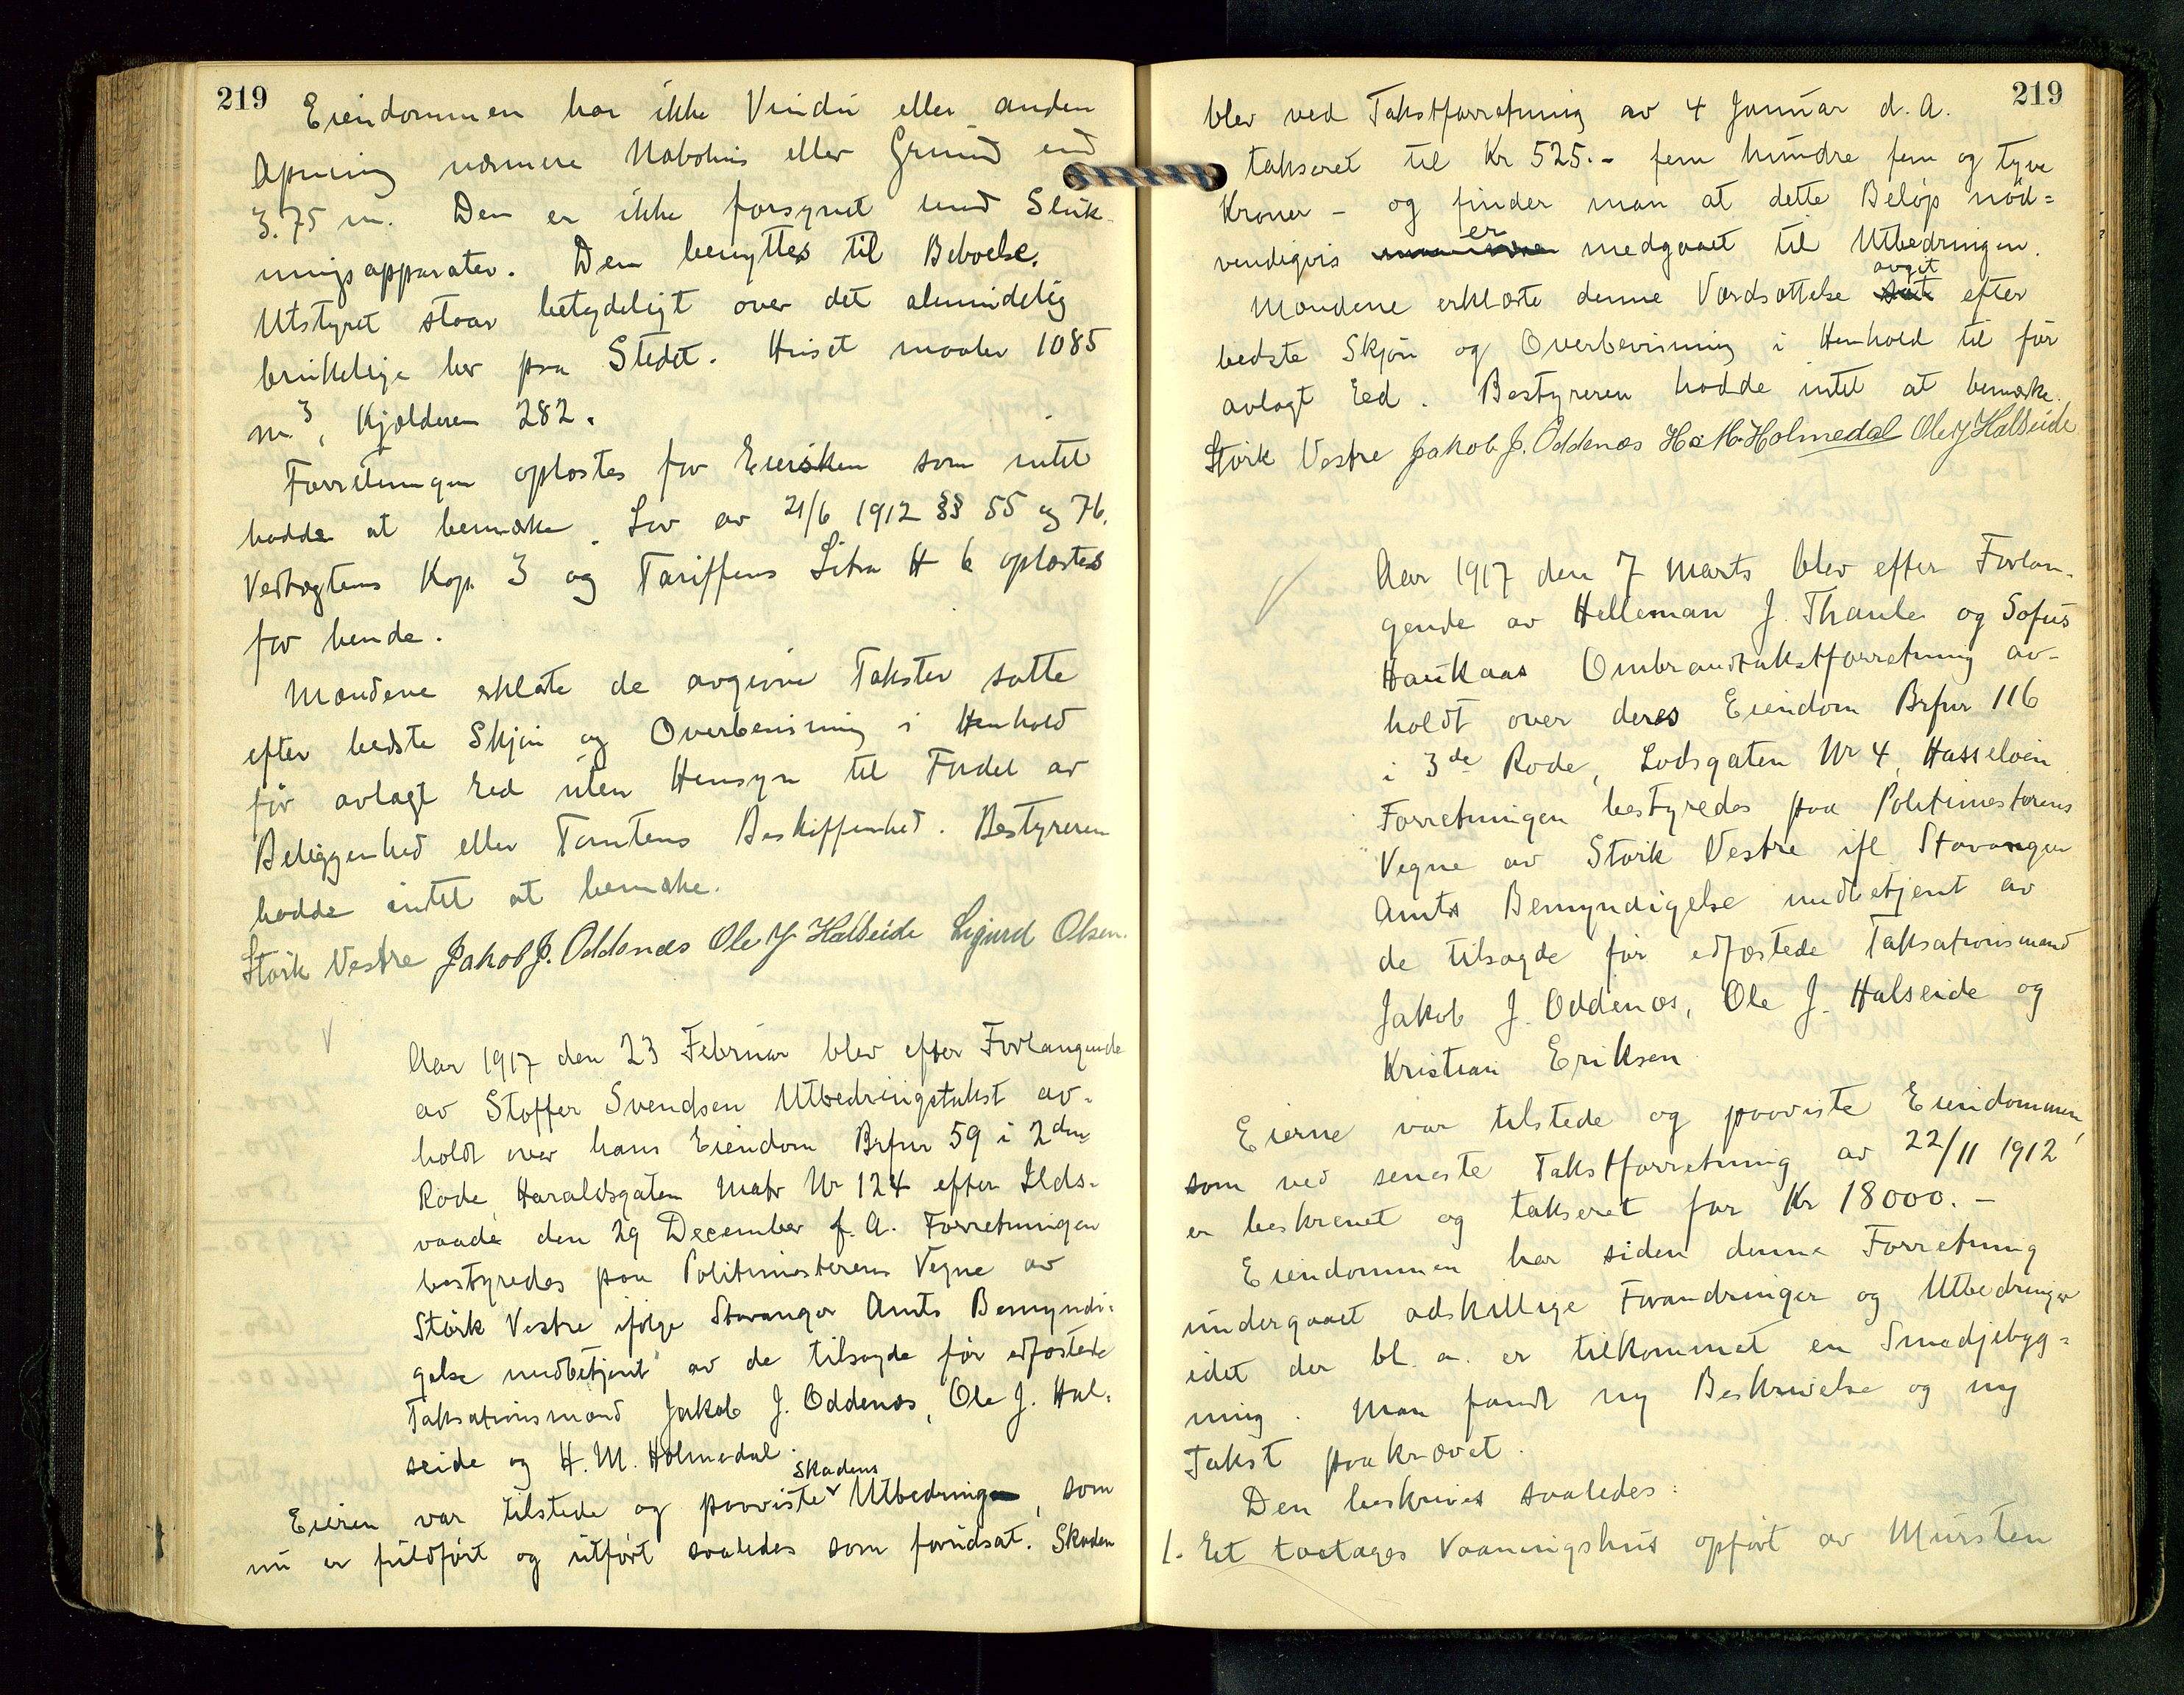 219
Eiendommen har ikke Vindu eller anden
Apning nærmere Nabohus eller Grund end
3.75 m. Den er ikke forsynet med Sluk-
ningsapparater. Den benyttes til Beboelse.
Utstyret staar betydeligt over det almindelig
brukelige her paa Stedet. Huset maaler 1085
m³, Kjælderen 282.
Forretningen oplæstes for Eiersken som intet
hadde at bemærke. Lov av 21/6 1912 §§ 55 og 76.
Vedtægtens Kap. 3 og Tariffens Litra H 6 oplæstes
for hende.
Mændene erklærte de avgivne Takster satte
efter bedste Skjøn og Overbevisning i Henhold
før avlagt Eed uten Hensyn til Fordel av
Beliggenhed eller Tomtens Beskaffenhet. Bestyreren
hadde intet at bemærke.
Størk Vestre Jakob J. Oddenæs Ole J Halseide Sigurd Olsen.
Aar 1917 den 23 Februar blev efter Forlangende
av Stoffer Svendsen Utbedringstakst av-
holdt over hans Eiendom Brfnr 59 i 2den
Rode, Haraldsgaten Matr Nr 124 efter Ilds-
vaade den 29 December f. A. Forretningen
bestyredes paa Politimesterens Vegne av
Størk Vestre ifølge Stavanger Amts Bemyndi-
gelse medbetjent av de tilsagde før edfæstede
Taksationsmænd Jakob J. Oddenæs, Ole J. Hal-
seide og H. M. Holmedal.
Skadens
Eieren var tilstede og paaviste Utbedringen, som
nu er fuldført og utført saaledes som forudsat. Skaden
219
blev ved Takstforretning av 4 Januar d. A.
takseret til Kr 525.- fem hundre fem og tyve
Kroner - og finder man at dette Beløp nød-
er
vendigvis medgaaet til Utbedringen.
avgit
Mændene erklærte denne Værdsættelse sat efter
bedste Skjøn og Overbevisning i Henhold til før
avlagt Eed. Bestyreren hadde intet at bemærke.
Størk Vestre Jakob J. Oddenæs H. M. Holmedal Ole J Halseide
Aar 1917 den 7 Marts blev efter Forlan-
gende av Helleman J. Thaule og Sofus
Haukaas Ombrandtakstforretning av-
holdt over deres Eiendom Brfnr 116
i 3de Rode, Lodsgaten Nr 4, Hasseløen
Forretningen bestyredes paa Politimesterens
Vegne av Størk Vestre ifl Stavanger
Amts Bemyndigelse medbetjent av
de tilsagde før edfæstede Taksationsmænd
Jakob J. Oddenæs, Ole J. Halseide og
Kristian Eriksen
Eierne var tilstede og paaviste Eiendommen,
som ved seneste Takstforretning av 22/11 1912
er beskrevet og takseret for Kr 18000.-
Eiendommen har siden denne Forretning
undergaaet adskillige Forandringer og Utbedringer
idet der bl. a. er tilkommet en Smedjebyg-
ning. Man fandt ny Beskrivelse og ny
Takst paakrævet.
Den beskrives saaledes:
1. Et toetages Vaaningshus opført av Mursten